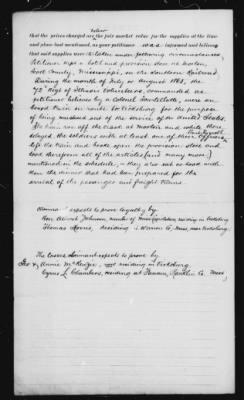 below
that the prices charged are the fair market value for the supplies at the time
and place had mentioned, as your petitioner was informed and believes
that said supplies were taken under following circumstances
Petitioner kept a hotel and provision store at Morton,
Scott County, Mississippi, on the Southern Railroad.
During the month of July or August 1865, the
"72" Regt of Illinois Volunteers, commanded as
petitioner believes by a Colonel, were on
board train en route to Vicksburg for the purpose
of being mustered out of the service of the United States.
The train ran off the track at Morton and while there
delayed the soldiers with at least one of their Officers
left the train and broke open the provision store and
took therefrom all of the articles (and many more)
mentioned in the schedule, they also eat or took with
them the dinner that had been prepared for the
arrival of the passenger and freight trains.
expects to prove loyalty by
Hon Johnson, residing in Vicksburg
Thomas Morris, residing in Warren Co, Miss, near Vicksburg.
The Claimant expects to prove by
Geo & Annie McKenzie, residing in Vicksburg.
Cyrus Chambers, residing at, Rankin Co. Miss,